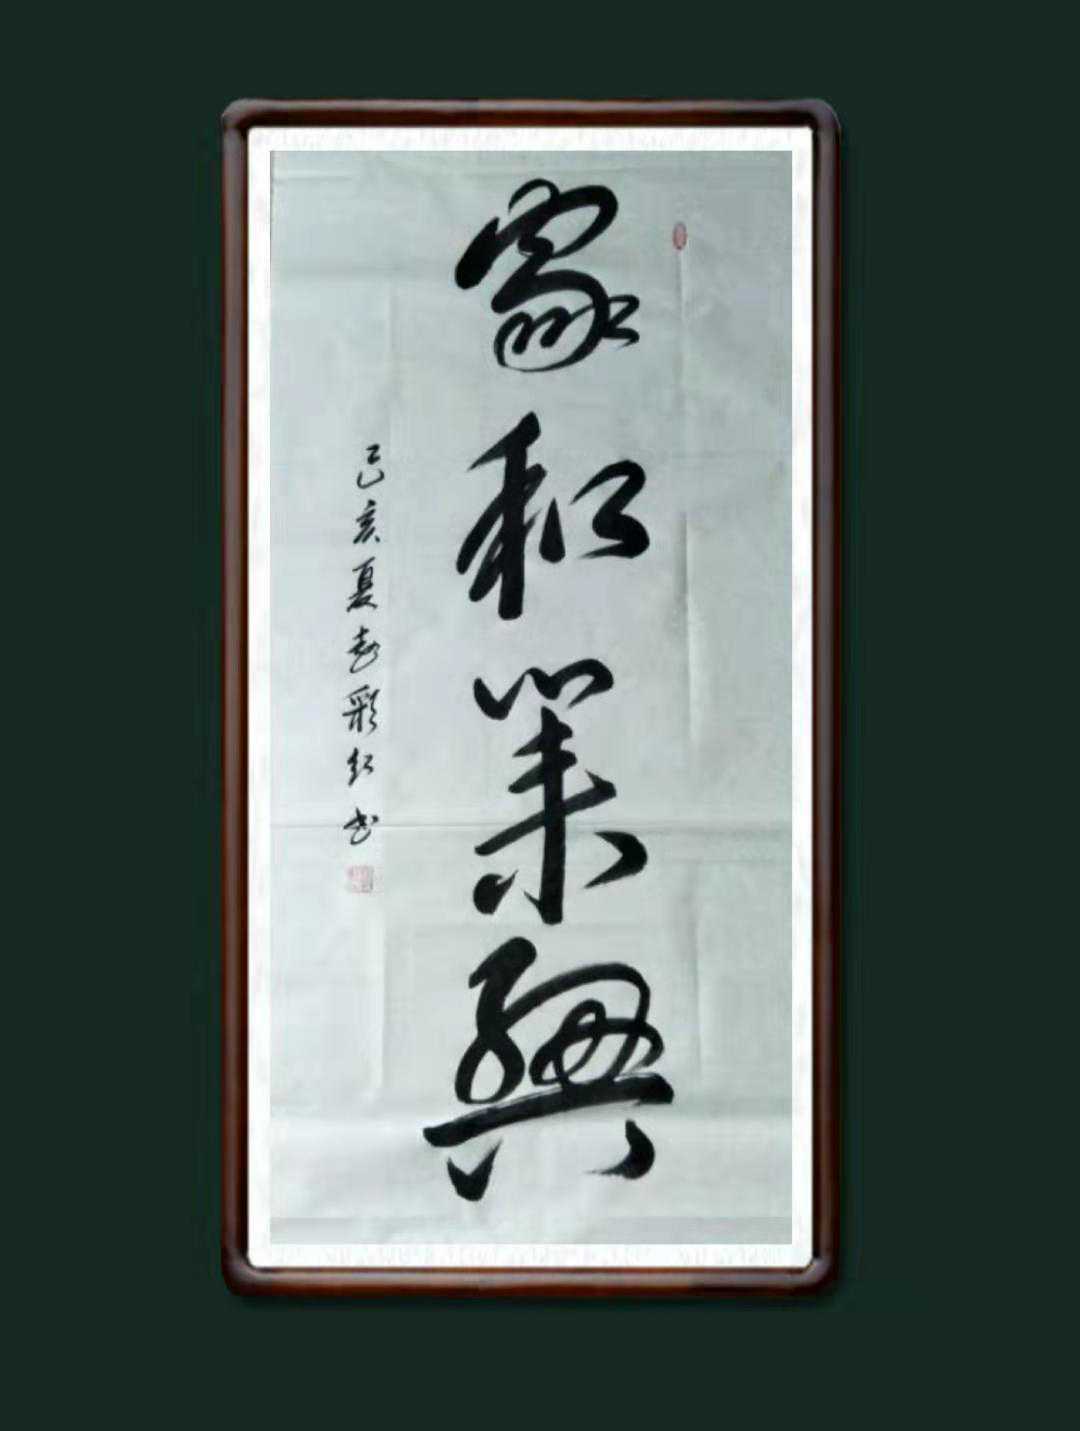 家和業興
己亥夏彭彩红书